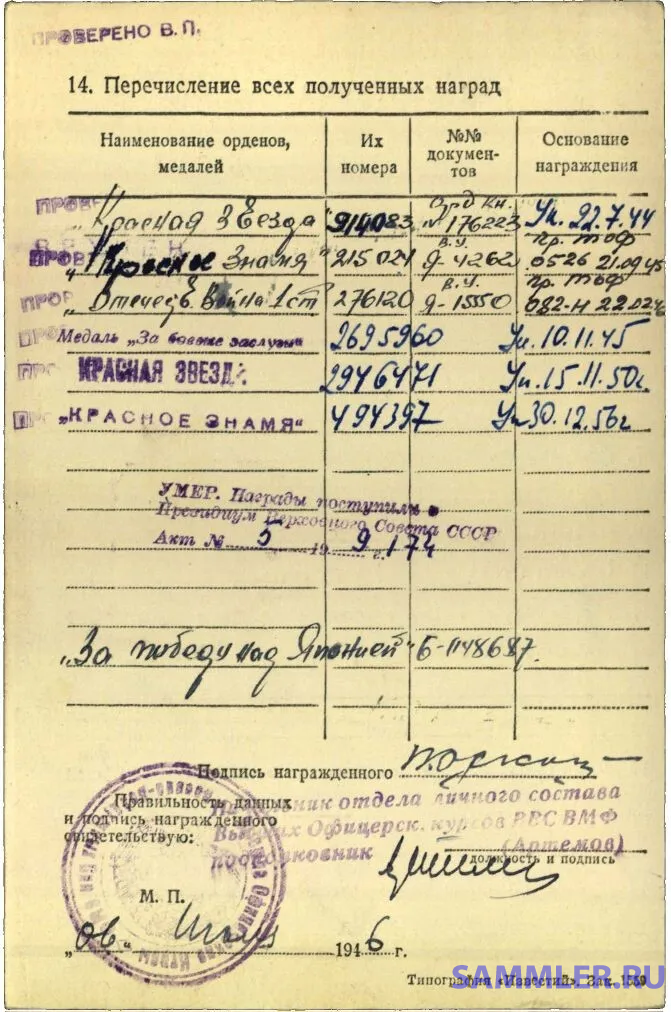 ПРОВЕРЕНО В. П.
14. Перечисление всех полученных наград
Наименование орденов, медалей
Их номера
№№ документов
Основание награждения
"Красная Звезда" 914083 Орд. кн. № 176223 Ук. 22.7.44
"Красное Знамя" 215024 в.у. Д-4262 пр. ТОФ 0526 21.09.45
"Отечеств. Война 1 ст 276120 в.у. Д-1550 пр. ТОФ 082-Н 22.02.46
Медаль „За боевые заслуги" 2695960 Ук. 10.11.45
КРАСНАЯ ЗВЕЗДА 2946471 Ук. 15.11.50г
„КРАСНОЕ ЗНАМЯ" 494397 Ук 30.12.56г
УМЕР. Награды поступили в
Президиум Верховного Совета СССР
Акт № 5 19 г. 9.1 74
„За победу над Японией" Б-1148687.
Подпись награжденного
Правильность данных
и подпись награжденного
свидетельствую:
Начальник отдела личного состава
Высших Офицерск. курсов РВС ВМФ
подполковник (Артемов)
должность и подпись
М. П.
1946 г.
Типография «Известий». Зак. 1559
SAMMLER.RU